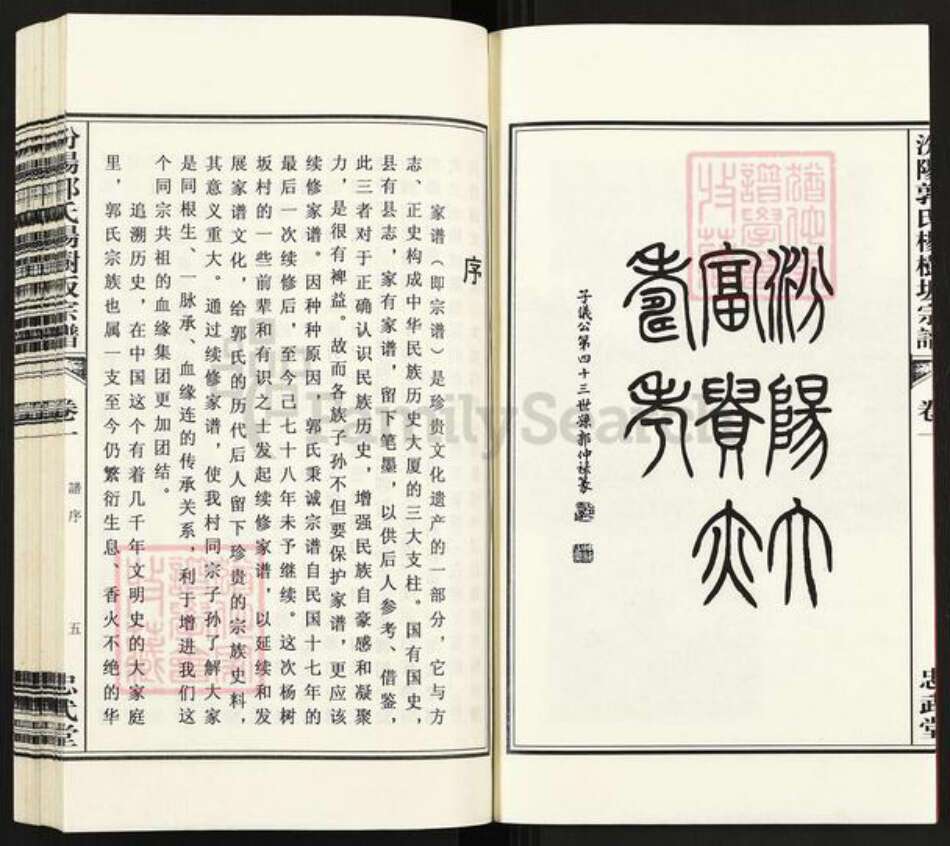 汾陽郭氏楊樹坂宗譜 卷一 忠武堂
猶他
譜學會
收藏
汾陽大
富貴亦
壽考
子儀公第四十三世孫郭仲禄篆
序
家谱（即宗谱）是珍贵文化遗产的一部分，它与方
志、正史构成中华民族历史大厦的三大支柱。国有国史，
县有县志，家有家谱，留以笔墨，以供后人参考、借鉴，
此三者对于正确认识民族历史，增强民族自豪感和凝聚
力，是很有裨益。故而各族子孙不但要保护家谱，更应该
续修家谱。因种种原因，郭氏秉诚宗谱自民国十七年的
最后一次续修后，至今已七十八年未予继续。这次杨树
坂村的一些前辈和有识之士发起续修家谱，以延续和发
展家谱文化，给郭氏的历代后人留下珍贵的宗族史料，
其意义重大。通过续修家谱，使我村同宗子孙了解大家
是同根生、一脉承、血缘连的传承关系，利于增进我们这
个同宗共祖的血缘集团更加团结。
追溯历史，在中国这个有着几千年文明史的大家庭
里，郭氏宗族也属一支至今仍繁衍生息、香火不绝的华
汾陽郭氏楊樹坂宗譜 卷一 譜序 五 忠武堂
FamilySearch